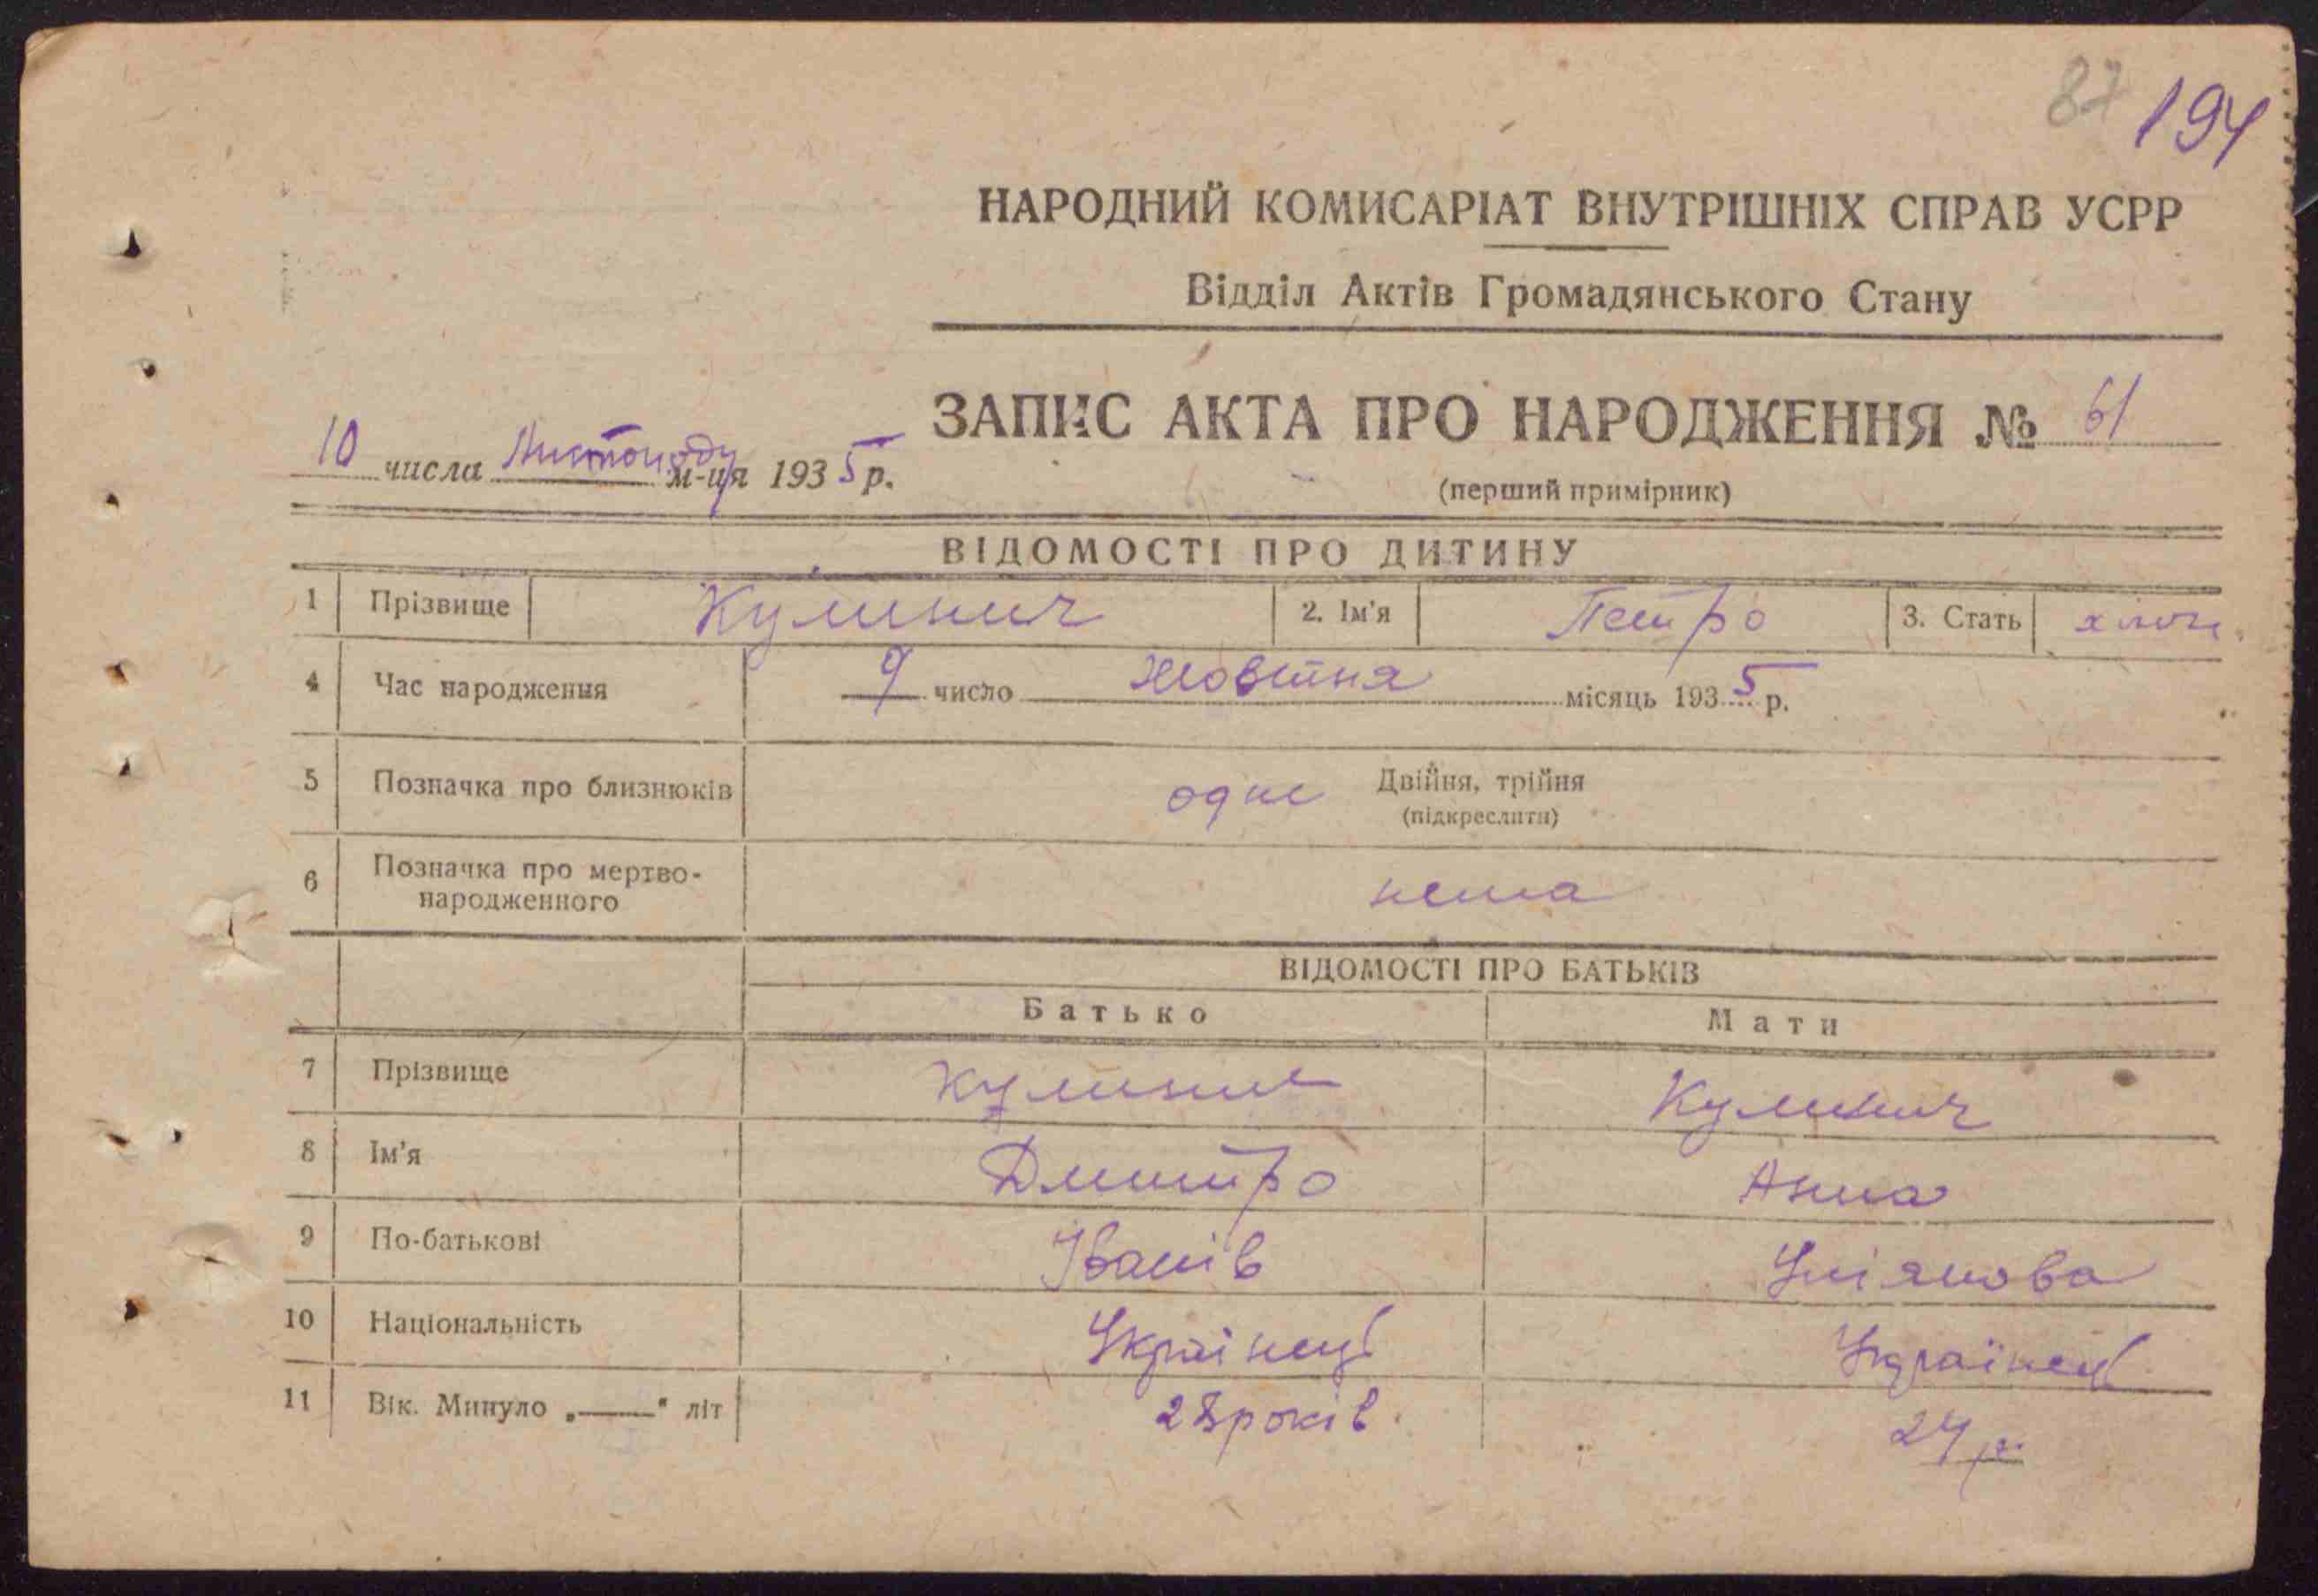 87 194
НАРОДНИЙ КОМИСАРІАТ ВНУТРІШНІХ СПРАВ УСРР
Відділ Актів Громадянського Стану
ЗАПИС АКТА ПРО НАРОДЖЕННЯ № 61
10 числа Листопаду м-ця 1935 р.
(перший примірник)
ВІДОМОСТІ ПРО ДИТИНУ
1 Прізвище Кулинич 2. Ім'я Петро 3. Стать
4 Час народження 9 число Жовтня місяць 1935 р.
5 Позначка про близнюків одне Двійня, трійня
(підкреслити)
6 Позначка про мертво-
народженного нема
ВІДОМОСТІ ПРО БАТЬКІВ
Батько Мати
7 Прізвище Кулинич Кулинич
8 Ім'я Дмитро Анна
9 По-батькові Іванів Улянова
10 Національність Українець Українець
11 Вік. Минуло „——" літ 28 років. 24 р.